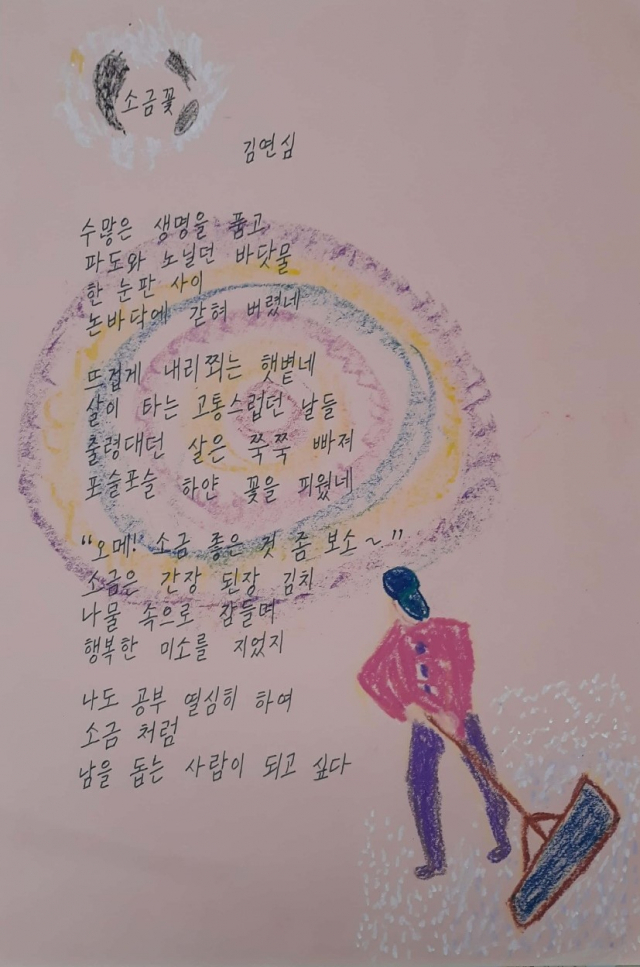 소금꽃
김연심
수많은 생명을 품고
파도와 노닐던 바닷물
한 눈판 사이
논바닥에 갇혀 버렸네
뜨겁게 내리쬐는 햇볕네
살이 타는 고통스럽던 날들
출령대던 살은 쭉쭉 빠져
포슬포슬 하얀 꽃을 피웠네
“오메! 소금 좋은 것 좀 보소~”
소금은 간장 된장 김치
나물 속으로 잠들며
행복한 미소를 지었지
나도 공부 열심히 하여
소금 처럼
남을 돕는 사람이 되고 싶다